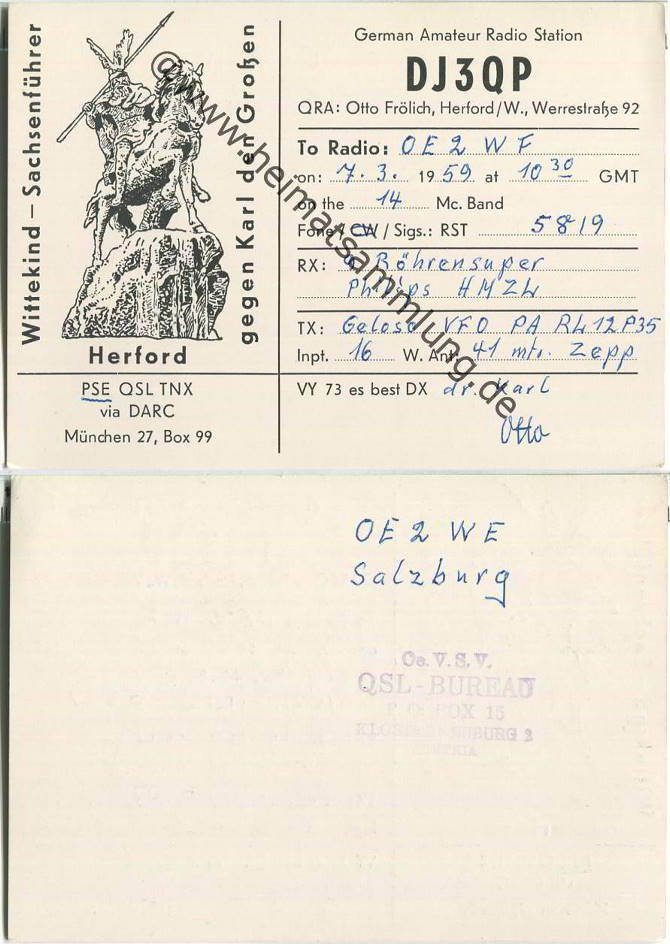 Wittekind – Sachsenführer
gegen Karl den Großen
Herford
PSE QSL TNX
via DARC
München 27, Box 99
German Amateur Radio Station
DJ3QP
QRA: Otto Frölich, Herford/W., Werrestraße 92
To Radio: OE2WF
on: 7.3. 1959 at 10 30 GMT
on the 14 Mc. Band
Fone / CW / Sigs.: RST 5819
RX: Röhrensuper
Philips HMZL
TX: Geloso VFO PA RL12P35
Inpt. 16 W. Ant. 41 mtr. Zepp
VY 73 es best DX dr. Karl
Otto
©www.heimatsammlung.de
OE2WE
Salzburg
Oe. V. S. V.
QSL-BUREAU
P O BOX 15
KLOSTERNEUBURG 2
AUSTRIA